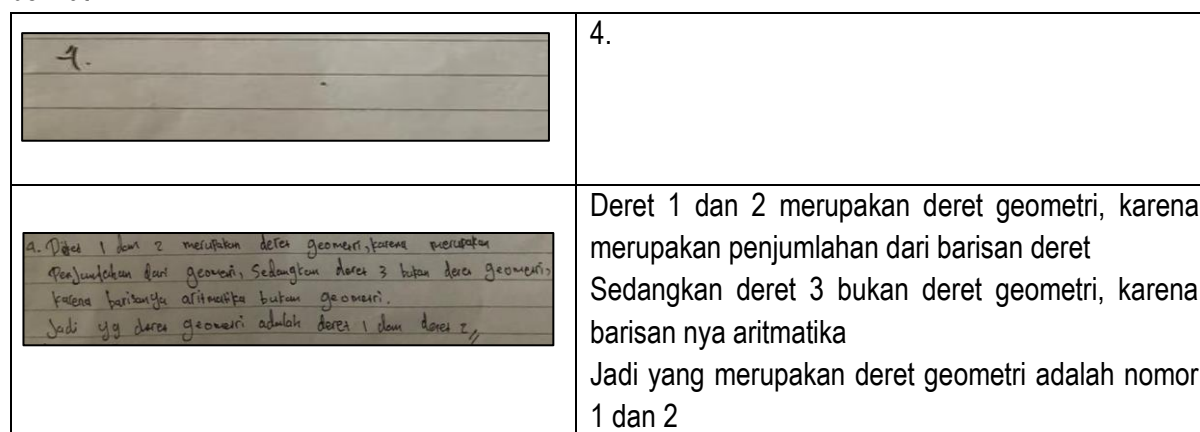 4.
4.
a. Deret 1 dan 2 merupakan deret geometri, karena merupakan
Penjumlahan dari geometri, Sedangkan deret 3 bukan deret geometri,
karena barisanya aritmatika bukan geometri.
Jadi yg deret geometri adalah deret 1 dan deret 2,,
Deret 1 dan 2 merupakan deret geometri, karena
merupakan penjumlahan dari barisan deret
Sedangkan deret 3 bukan deret geometri, karena
barisan nya aritmatika
Jadi yang merupakan deret geometri adalah nomor
1 dan 2